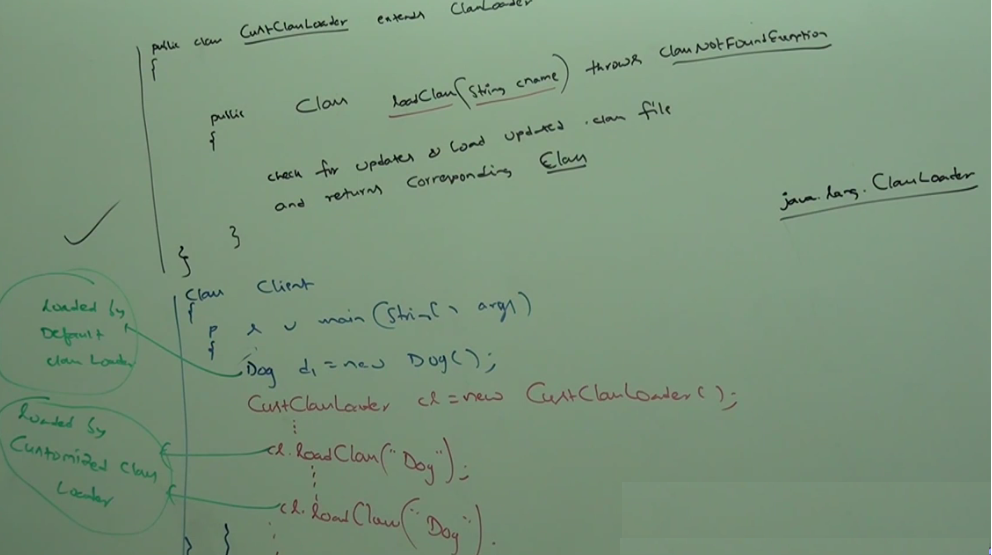 public class CustClassLoader extends ClassLoader
{
public Class loadClass(String cname) throws ClassNotFoundException
{
check for updates & load updated .class file
and returns corresponding Class
java.lang.ClassLoader
}
}
Class Client
{
p s v main (String[] args)
{
Dog d1 = new Dog();
Loaded by
Default
class Loader
CustClassLoader cl = new CustClassLoader();
⋮
cl.loadClass("Dog");
⋮
cl.loadClass("Dog").
⋮
Loaded by
Customized Class
Loader
} }